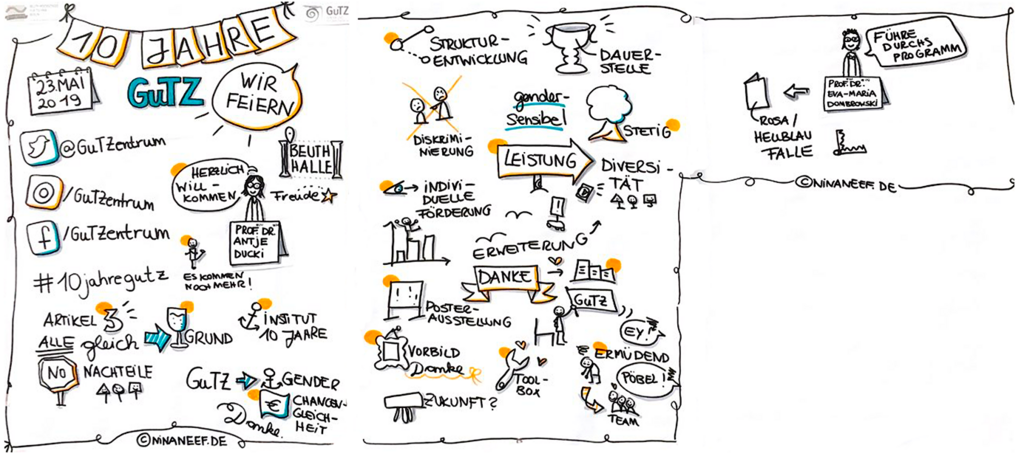 GuTZ
10 JAHRE
23. MAI
2019
GuTZ
WIR
FEIERN
@GuTZentrum
/GuTZentrum
/GuTZentrum
#10jahregutz
BEUTH
HALLE
HERZLICH
WILL-
KOMMEN
Freude
PROF. DR.
ANTJE
DUCKI
ES KOMMEN
NOCH MEHR!
ARTIKEL 3
ALLE gleich
GRUND
INSTITUT
10 JAHRE
NO
NACHTEILE
GuTZ
GENDER
€
CHANCEN-
GLEICH-
HEIT
Danke.
©NINANEEF.DE
STRUKTUR-
ENTWICKLUNG
DAUER-
STELLE
DISKRIMI-
NIERUNG
gender-
Sensibel
STETIG
LEISTUNG
DIVERSI-
TÄT
INDIVI-
DUELLE
FÖRDERUNG
ERWEITERUNG
DANKE
POSTER-
AUSSTELLUNG
GUTZ
EY!
VORBILD
Danke
TOOL-
BOX
ERMÜDEND
PÖBEL!
TEAM
ZUKUNFT?
FÜHRE
DURCHS
PROGRAMM
PROF. DR.
EVA-MARIA
DOMBROWSKI
ROSA/
HELLBLAU
FALLE
©NINANEEF.DE